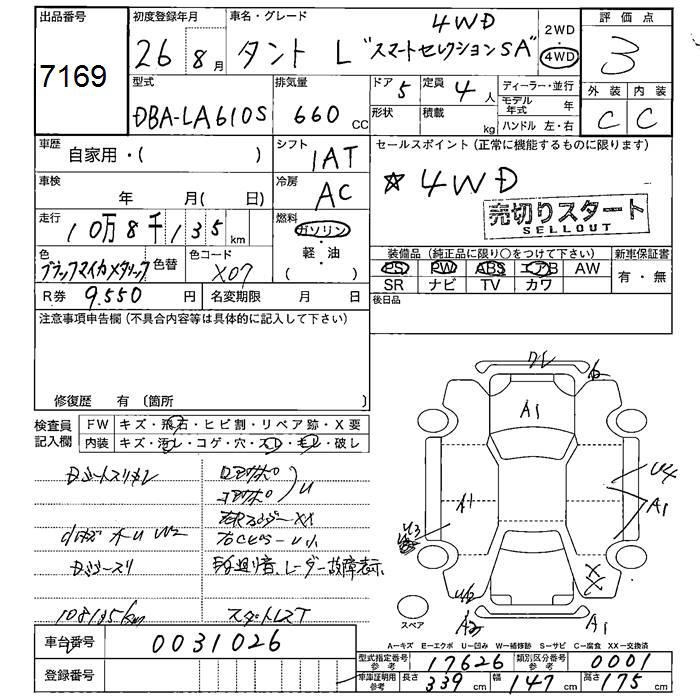 出品番号
7169
初度登録年月
26 8月
車名・グレード
4WD
タント L "スマートセレクションSA"
2WD
・
4WD
評価点
3
外装 内装
C C
型式
DBA-LA610S
排気量
660 CC
ドア 5
形状
定員 4人
積載 kg
ディーラー・並行
モデル年式 年
ハンドル 左・右
車歴
自家用・( )
シフト
1AT
セールスポイント (正常に機能するものに限ります)
☆4WD
売切りスタート
SELLOUT
車検
年 月( 日)
冷房
AC
走行
10万8千135km
燃料
ガソリン
・
軽・油
( )
色
ブラックマイカメタリック
色替
色コード
X07
R券 9.550 円
名変期限 月 日
装備品 (純正品に限り○をつけて下さい)
PS PW ABS エアB AW
SR ナビ TV カワ
新車保証書
有・無
後日品
注意事項申告欄 (不具合内容等は具体的に記入して下さい)
修復歴 有 〔箇所 〕
検査員
記入欄
FW キズ・飛石・ヒビ割・リペア跡・X要
内装 キズ・汚レ・コゲ・穴・スレ・モレ・破レ
レーダー故障表示
108135km
スタッドレスT
A1
U4
A1
XX
A2
A1
スペア
A=キズ E=エクボ U=凹み W=補修跡 S=サビ C=腐食 XX=交換済
車台番号 0031026
登録番号
型式指定番号 参考 17626
類別区分番号 参考 0001
車庫証明用 参考
長さ 339 cm
幅 147 cm
高さ 175 cm